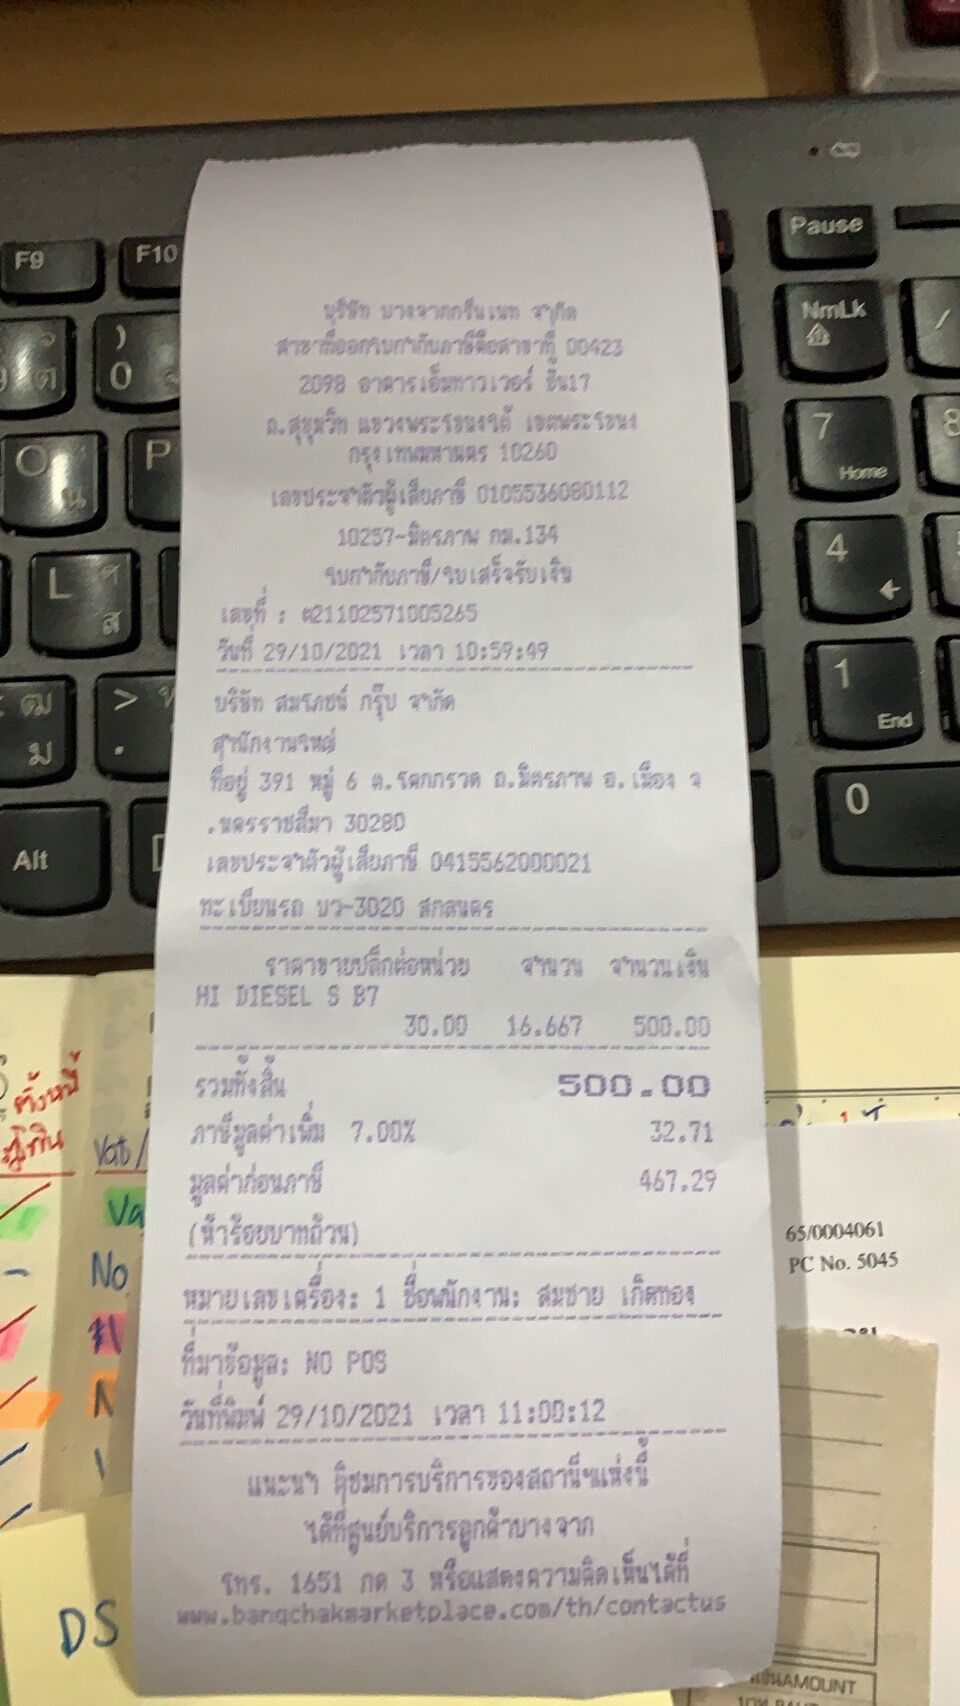 บริษัท บางจากกรีนเนท จำกัด
สาขาที่ออกใบกำกับภาษีคือสาขาที่ 00423
2098 อาคารเอ็มทาวเวอร์ ชั้น17
ถ.สุขุมวิท แขวงพระโขนงใต้ เขตพระโขนง
กรุงเทพมหานคร 10260
เลขประจำตัวผู้เสียภาษี 0105536080112
10257-มิตรภาพ กม.134
ใบกำกับภาษี/ใบเสร็จรับเงิน
เลขที่ : 21102571005265
วันที่ 29/10/2021 เวลา 10:59:49
บริษัท สมรภชน์ กรุ๊ป จำกัด
สำนักงานใหญ่
ที่อยู่ 391 หมู่ 6 ต.โคกกรวด ถ.มิตรภาพ อ.เมือง จ
.นครราชสีมา 30280
เลขประจำตัวผู้เสียภาษี 0415562000021
ทะเบียนรถ บว-3020 สกลนคร
ราคาขายปลีกต่อหน่วย จำนวน จำนวนเงิน
HI DIESEL S B7
30.00 16.667 500.00
รวมทั้งสิ้น 500.00
ภาษีมูลค่าเพิ่ม 7.00% 32.71
มูลค่าก่อนภาษี 467.29
(ห้าร้อยบาทถ้วน)
หมายเลขเครื่อง: 1 ชื่อพนักงาน: สมชาย เกิดทอง
ที่มาข้อมูล: NO POS
วันที่พิมพ์ 29/10/2021 เวลา 11:00:12
แนะนำ ติชมการบริการของสถานีฯแห่งนี้
ได้ที่ศูนย์บริการลูกค้าบางจาก
โทร. 1651 กด 3 หรือแสดงความคิดเห็นได้ที่
www.bangchakmarketplace.com/th/contactus
F9
F10
Pause
NmLk
)
0
O
น
P
7
Home
8
L
ส
4
>
.
ฒ
ม
1
End
Alt
0
/
ทั้งหมด
Vat/
No
DS
65/0004061
PC No. 5045
AMOUNT